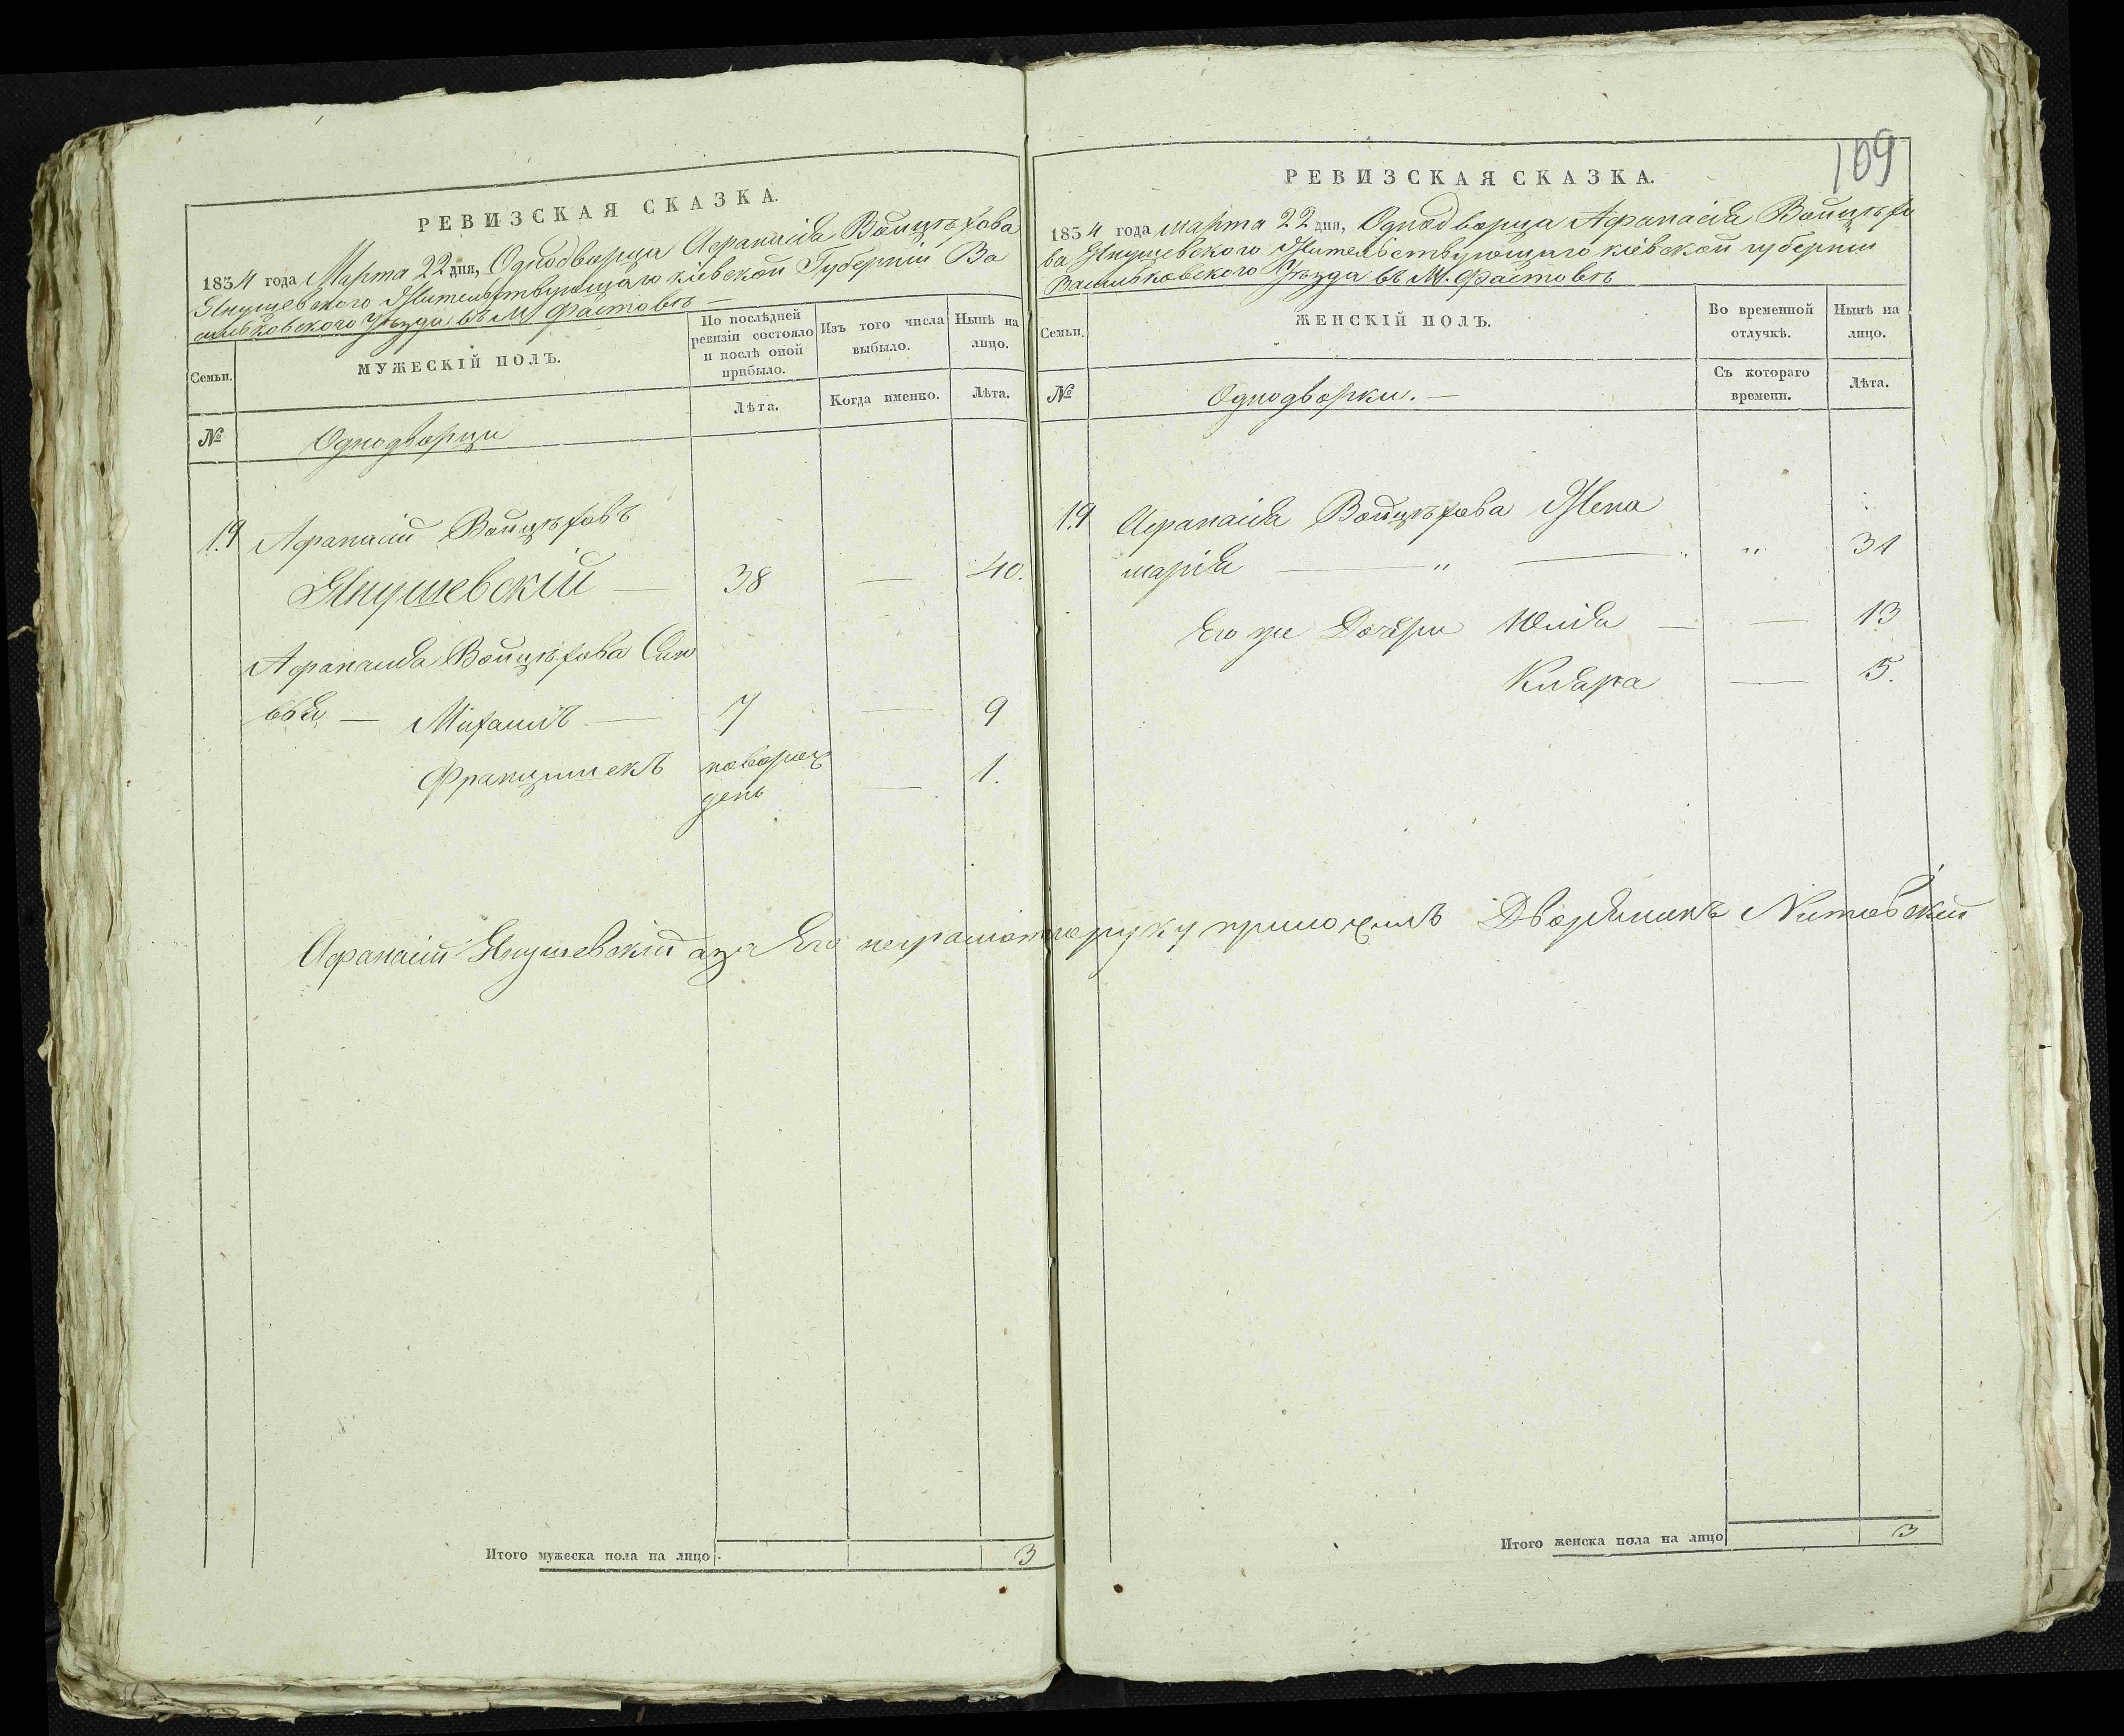 РЕВИЗСКАЯ СКАЗКА.
1834 года Марта 22 дня, Однодворца Афанасія Войцѣхова
Янушевского Жительствующаго кіевской Губерніи Ва
сильковского Уѣзда въ М Фастовѣ —
Семьи.
МУЖЕСКІЙ ПОЛЪ.
По послѣдней ревизіи состояло и послѣ оной прибыло.
Изъ того числа выбыло.
Нынѣ на лицо.
Лѣта.
Когда именно.
Лѣта.
№
Однодворци
19 Афанасій Войцѣховъ
Янушевскій — 38 — 40.
Афанасія Войцѣхова Сыно
вья — Михаилъ — 7 — 9
Францишекъ новорож — 1.
день
Афанасій Янушевскій а за Его неграмотна руку приложилъ Дворянинъ
Итого мужеска пола на лицо 3
109
РЕВИЗСКАЯ СКАЗКА.
1834 года марта 22 дня, Однодворца Афанасія Войцѣхо
ва Янушевского Жительствующаго кіевской губерніи
Васильковского Уѣзда въ М. Фастовѣ
Семьи.
ЖЕНСКІЙ ПОЛЪ.
Во временной отлучкѣ.
Нынѣ на лицо.
Съ котораго времени.
Лѣта.
№
Однодворки. —
19 Афанасія Войцѣхова Жена
марія — " — " 31
Его же Дочери Юлія — — 13
Кляра — 5.
Итого женска пола на лицо 3